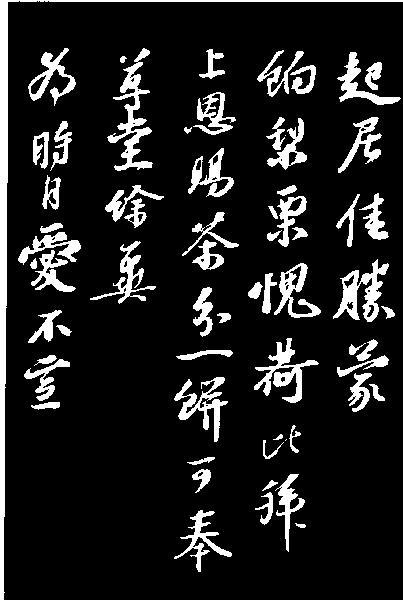 起居佳勝蒙
餉梨栗愧荷比拜
上恩賜茶分一餅可奉
尊堂餘冀
為時自愛不宣